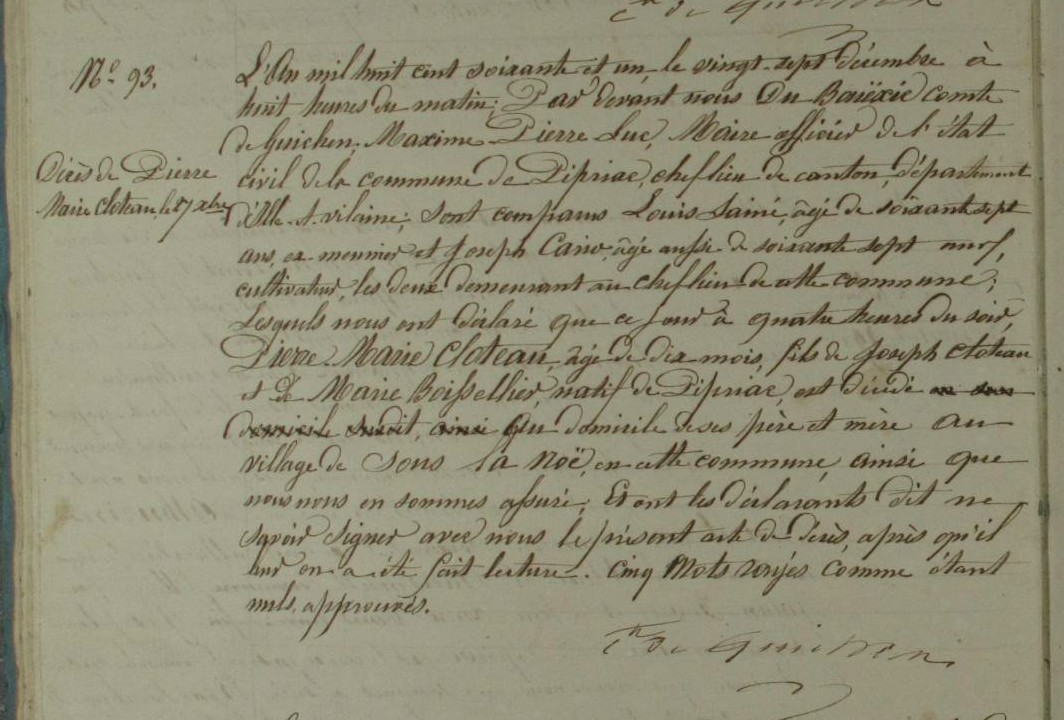 Cte de Guichen
N° 93.
Décès de Pierre
Marie Cloteau le 27 xbre
L'An mil huit cent soixante et un, le vingt-sept décembre à
huit heures du matin; Par devant nous Du Bouëxic comte
de Guichen, Maxime Pierre Luc, Maire officier de l'état
civil de la commune de Pipriac, cheflieu de canton, département
d'Ille-et-vilaine; sont comparus Louis Lainé, âgé de soixante sept
ans, ex-meunier et Joseph âgé aussi de soixante sept ans,
cultivateur, les deux demeurant au cheflieu de cette commune;
Lesquels nous ont déclaré que ce jour à quatre heures du soir,
Pierre Marie Cloteau, âgé de dix mois, fils de Joseph Cloteau
et de Marie Boissellier, natif de Pipriac, est décédé en son
domicile susdit, ainsi qu Au domicile de ses père et mère au
village de Sous la Noë, en cette commune, ainsi que
nous nous en sommes assuré; Et ont les déclarants dit ne
savoir signer avec nous le présent acte de Décès, après qu'il
leur en a été fait lecture. Cinq Mots rayés comme étant
nuls, approuvés.
Cte de Guichen